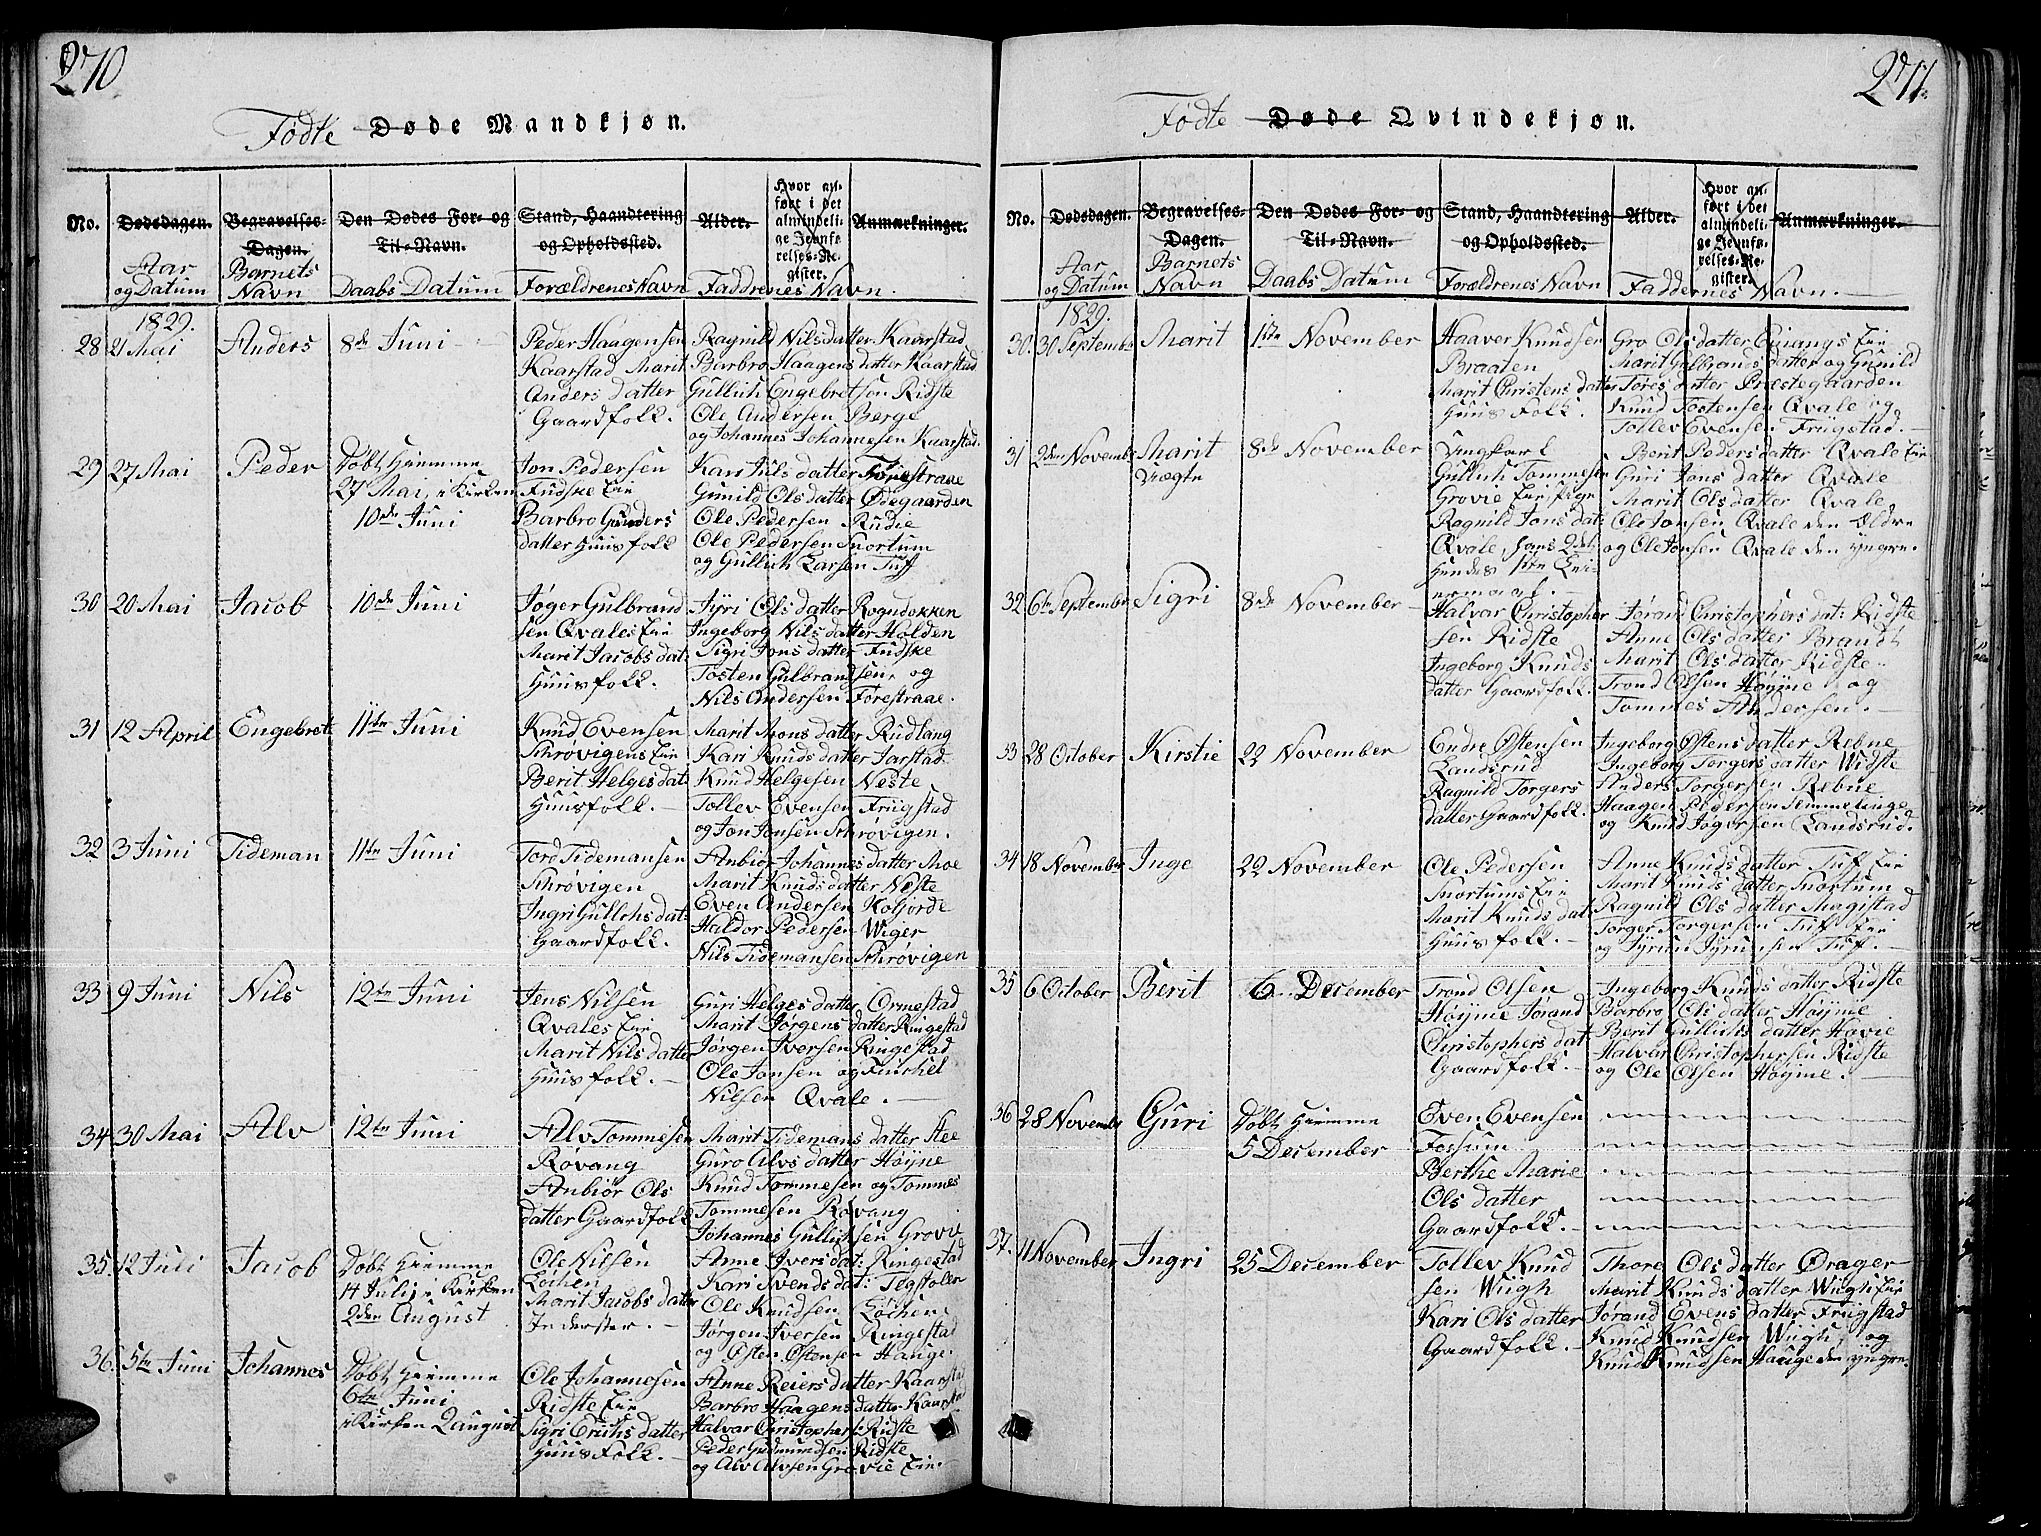 270
Fødte Døde Mandkjøn.
No. Dødsdagen. Begravelses-Dagen. Den Dødes For- og Til-Navn. Stand, Haandtering og Opholdssted. Alder. Hvor anført i det almindelige Jevnførelses-Register. Anmærkninger.
Aar og Datum Barnets Navn Daabs Datum Forældrenes Navn Faddrenes Navn.
1829.
28 21 Mai Anders 8de Juni Peder Haagensen Ragnild Nilsdatter Kaarstad
Kaarstad Marit Barbro Haagensdatter Kaarstad
Anders datter Gullich Engebretsen Ridste
Gaardfolk. Ole Andersen Berge
og Johannes Johannesen Kaarstad.
29 27 Mai Peder Døbt hiemme Jon Pedersen Kari Juls datter Forestraae
27 Mai, i Kirken Fudske Eie Gunild Ols datter Ødegaarden
10de Juni Barbro Gunders Ole Pedersen Rudie
datter Huusfolk Ole Pedersen Snortum
og Gullich Larsen Tuff
30 20 Mai Jacob 10de Juni Jøger Gulbrand Jyri Ols datter Rogndokken
sen Qvales Eie Ingeborg Nils datter Holden
Marit Jacobs dat: Sigri Jons datter Fudske
Huusfolk. Tosten Gulbrandsen, og
Nils Andersen Forestraae.
31 12 April Engebret 11te Juni Knud Evensen Marit Mons datter Rudlang
Schrøvigens Eie Kari Knuds datter Jarstad
Berit Helges dat: Knud Helgesen Neste
Huusfolk. Tollev Evensen Frugstad
og Jon Jonsen Schrøvigen.
32 3 Juni Tideman 11te Juni Tord Tidemansen Anbiør Johannes datter Moe
Schrøvigen Marit Knuds datter Neste
Ingri Gullichs dat: Even Andersen Kolsorde
Gaardfolk. Haldor Pedersen Wiger
Nils Tidemansen Schrøvigen
33 9 Juni Nils 12te Juni Jens Nilsen Guri Helges datter Ormestad
Qvales Eie Marit Jørgens datter Ringestad
Marit Nils datter Jørgen Iversen Ringestad
Huusfolk. Ole Jonsen og Finchel
Nilsen Qvale.
34 30 Mai Alv 12te Juni Alv Tommesen Marit Tidemans datter Stee
Røvang Guro Alvs datter Høyne
Anbiør Ols Knud Tommesen og Tommes
datter Gaardfolk Tommesen Røvang
Johannes Gullichsen Grovie
35. 12 Juli Jacob Døbt hiemme Ole Nilsen Anne Ivers dat: Ringestad
14 Juli, i Kirken Løchen Kari Svends dat: Tegstolen
2den August Marit Jacobs datter Ole Knudsen Løchen
Inderster. Jørgen Iversen Ringestad
og Østen Østensen Hauge.
36. 5te Juni Johannes Døbt hiemme Ole Johannesen Anne Reiers datter Kaarstad
6te Juni Ridste Eie Barbro Haagens datter Kaarstad
i Kirken 2 august Sigri Erichs datter Halvar Christophers: Ridste
Huus Folk. Peder Gudmundsen Ridste
og Alv Alvsen Grovie Eie.
271.
Fødte Døde Qvindekjøn.
No. Dødsdagen. Begravelses-Dagen. Den Dødes For- og Til-Navn. Stand, Haandtering og Opholdssted. Alder. Hvor anført i det almindelige Jevnførelses-Register. Anmærkninger.
Aar og Datum Barnets Navn Daabs Datum Forældrenes Navn Faddernes Navn.
1829.
30. 30 September Marit 1ste November Haaver Knudsen Gro Ols datter Eie
Braaten Marit Gulbrands datter og Gunild
Marit Christens datter Tores datter Præstegaarden
Huus Folk. Knud Tostensen Qvale og
Tollev Evensen Frugstad.
31 2den November Marit 8de November Ungkarl Berit Peders datter Qvale Eie
Uægte Gullich Tommesen Guri Jons datter Qvale
Grovie Eie, Pige Marit Ols datter Qvale
Ragnild Jons dat: Ole Jonsen Qvale den ældre
Qvale, hans 2det, og Ole Jonsen Qvale den yngre.
hendes 1te Leiermaal.
32 6te September Sigri 8de November Halvar Christopher Jørand Christophers dat: Ridste
sen Ridste Anne Ols datter Brandt
Ingeborg Knuds Marit Ols datter Ridste
datter Gaardfolk. Trond Olsen Høyne og
Tommes Andersen.
33 28 October Kirstie 22 November Endre Østensen Ingeborg Østens datter Rebne
Landsrud Ingeborg Torgers datter Widste
Ragnild Torgers Anders Torgersen Rebne
datter Gaardfolk. Haagen Pedersen Semmelinge
og Knud Jøgersen Landsrud.
34 18 November Inge 22 November Ole Pedersen Anne Knuds datter Tuf Eie
Snortums Eie Marit Knuds datter Snortum
Marit Knuds dat: Ragnild Ols datter Magistad
Huusfolk. Torger Torgersen Tuf Eie
og Syver Syversen Tuf.
35 6 October Berit 6 December Trond Olsen Ingeborg Knuds datter Ridste
Høyne Jørand Barbro Ols datter Høyne
Christophers dat: Berit Gullichs datter Hovie
Gaardfolk. Halvar Christophersen Ridste
og Ole Olsen Høyne.
36 28 November Guri Døbt hiemme Even Evensen
5 December Fossum
Berthe Marie
Ols datter
Gaardfolk.
37. 11 November Ingri 25 December Tollev Knud Thore Ols datter Drager
sen Wiigh Marit Knuds datter Wiigh Eie
Kari Ols datter Jørand Evens datter Frugstad
Gaardfolk. Knud Knudsen Wiigh, og
Knud Knudsen Hauge den yngre.